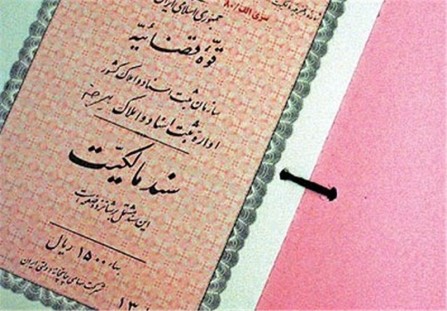 سری الف/۸۰
جمهوری اسلامی ایران
قوه قضائیه
سازمان ثبت اسناد و املاک کشور
اداره ثبت اسناد و املاک
سند مالکیت
این سند مشتمل بر شانزده صفحه است
بهاء ۱۵۰۰ ریال
شرکت سهامی چاپخانه دولتی ایران
۱۳